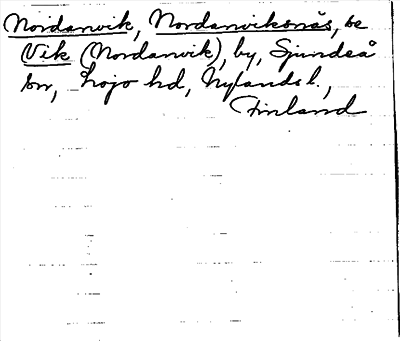 Nordanvik, Nordanviksnäs, se
Vik (Nordanvik), by, Sjundeå
sn, Lojo hd, Nylands l.,
Finland